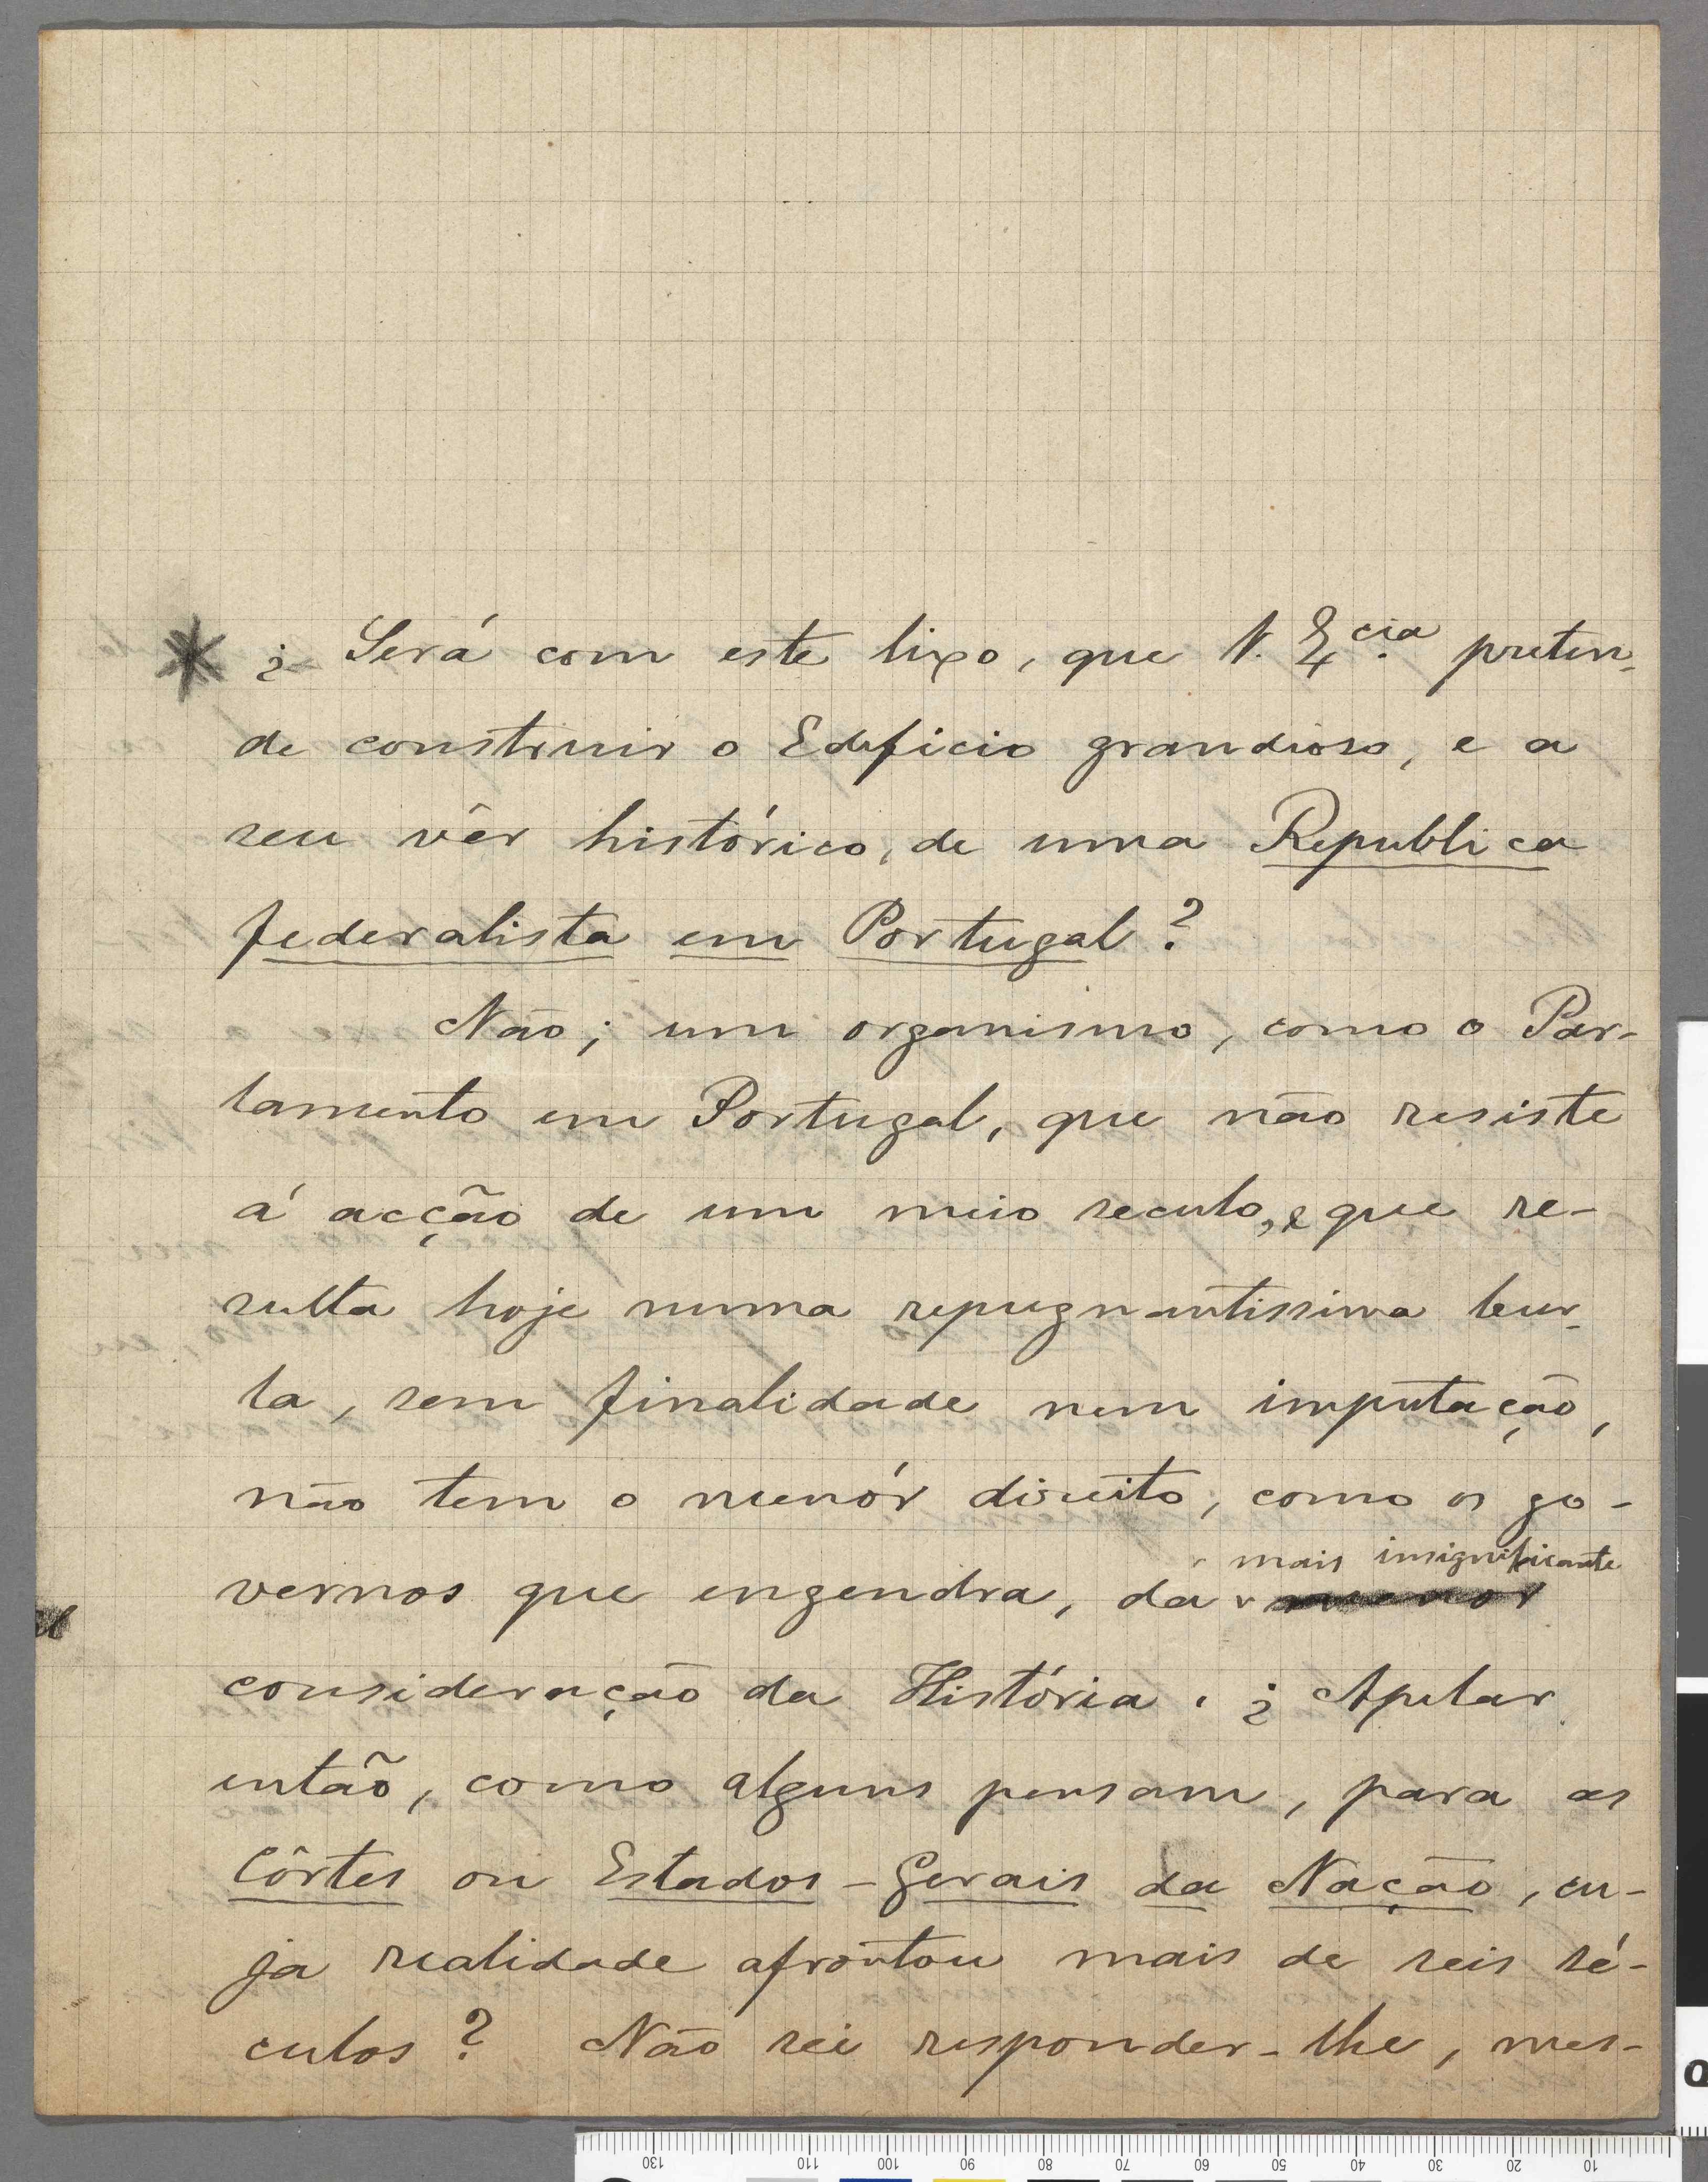 * ¿ Será com este lixo, que V. Ex.cia preten-
de construir o Edificio grandioso, e a
seu vêr histórico, de uma Republica
federalista em Portugal?
Não; um organismo, como o Par-
lamento em Portugal, que não resiste
á acção de um meio seculo, e que re-
sulta hoje numa repugnantissima bur-
la, sem finalidade nem imputação,
não tem o menór direito, como os go-
mais insignificante
vernos que engendra, da menor
consideração da História. ¿ Apelar
então, como alguns pensam, para as
Côrtes ou Estados-Gerais da Nação, cu-
ja realidade afrontou mais de seis sé-
culos? Não sei responder-lhe, mes-
130 110 100 90 80 70 60 50 40 30 20 10